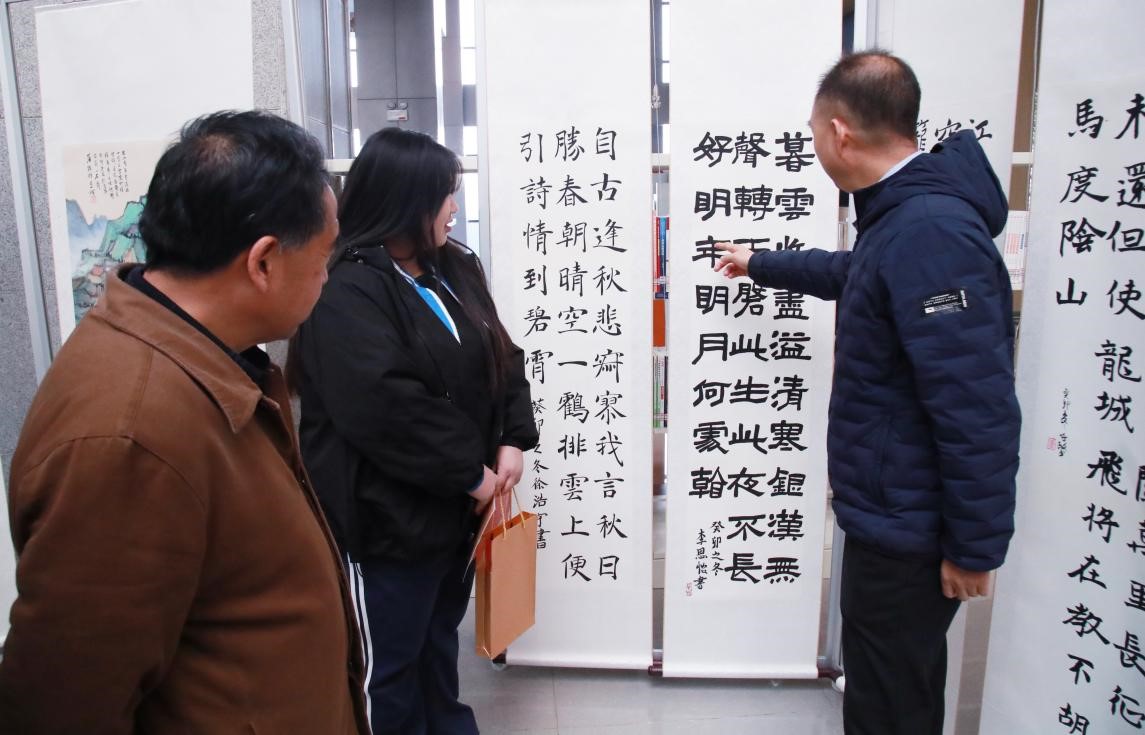 自古逢秋悲寂寥我言秋日
勝春朝晴空一鶴排雲上便
引詩情到碧霄
癸卯之冬徐浩宇書
暮雲收盡溢清寒銀漢無
聲轉玉盤此生此夜不長
好明年明月何處看
癸卯之冬
李思怡書
江
萬里長征
未還但使龍城飛將在教不胡
馬度陰山